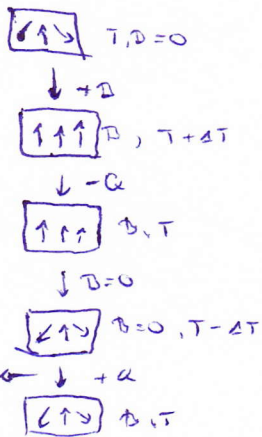 T, B=0
+B
B, T+ΔT
-Q
B, T
B=0
B=0, T-ΔT
+Q
B, T